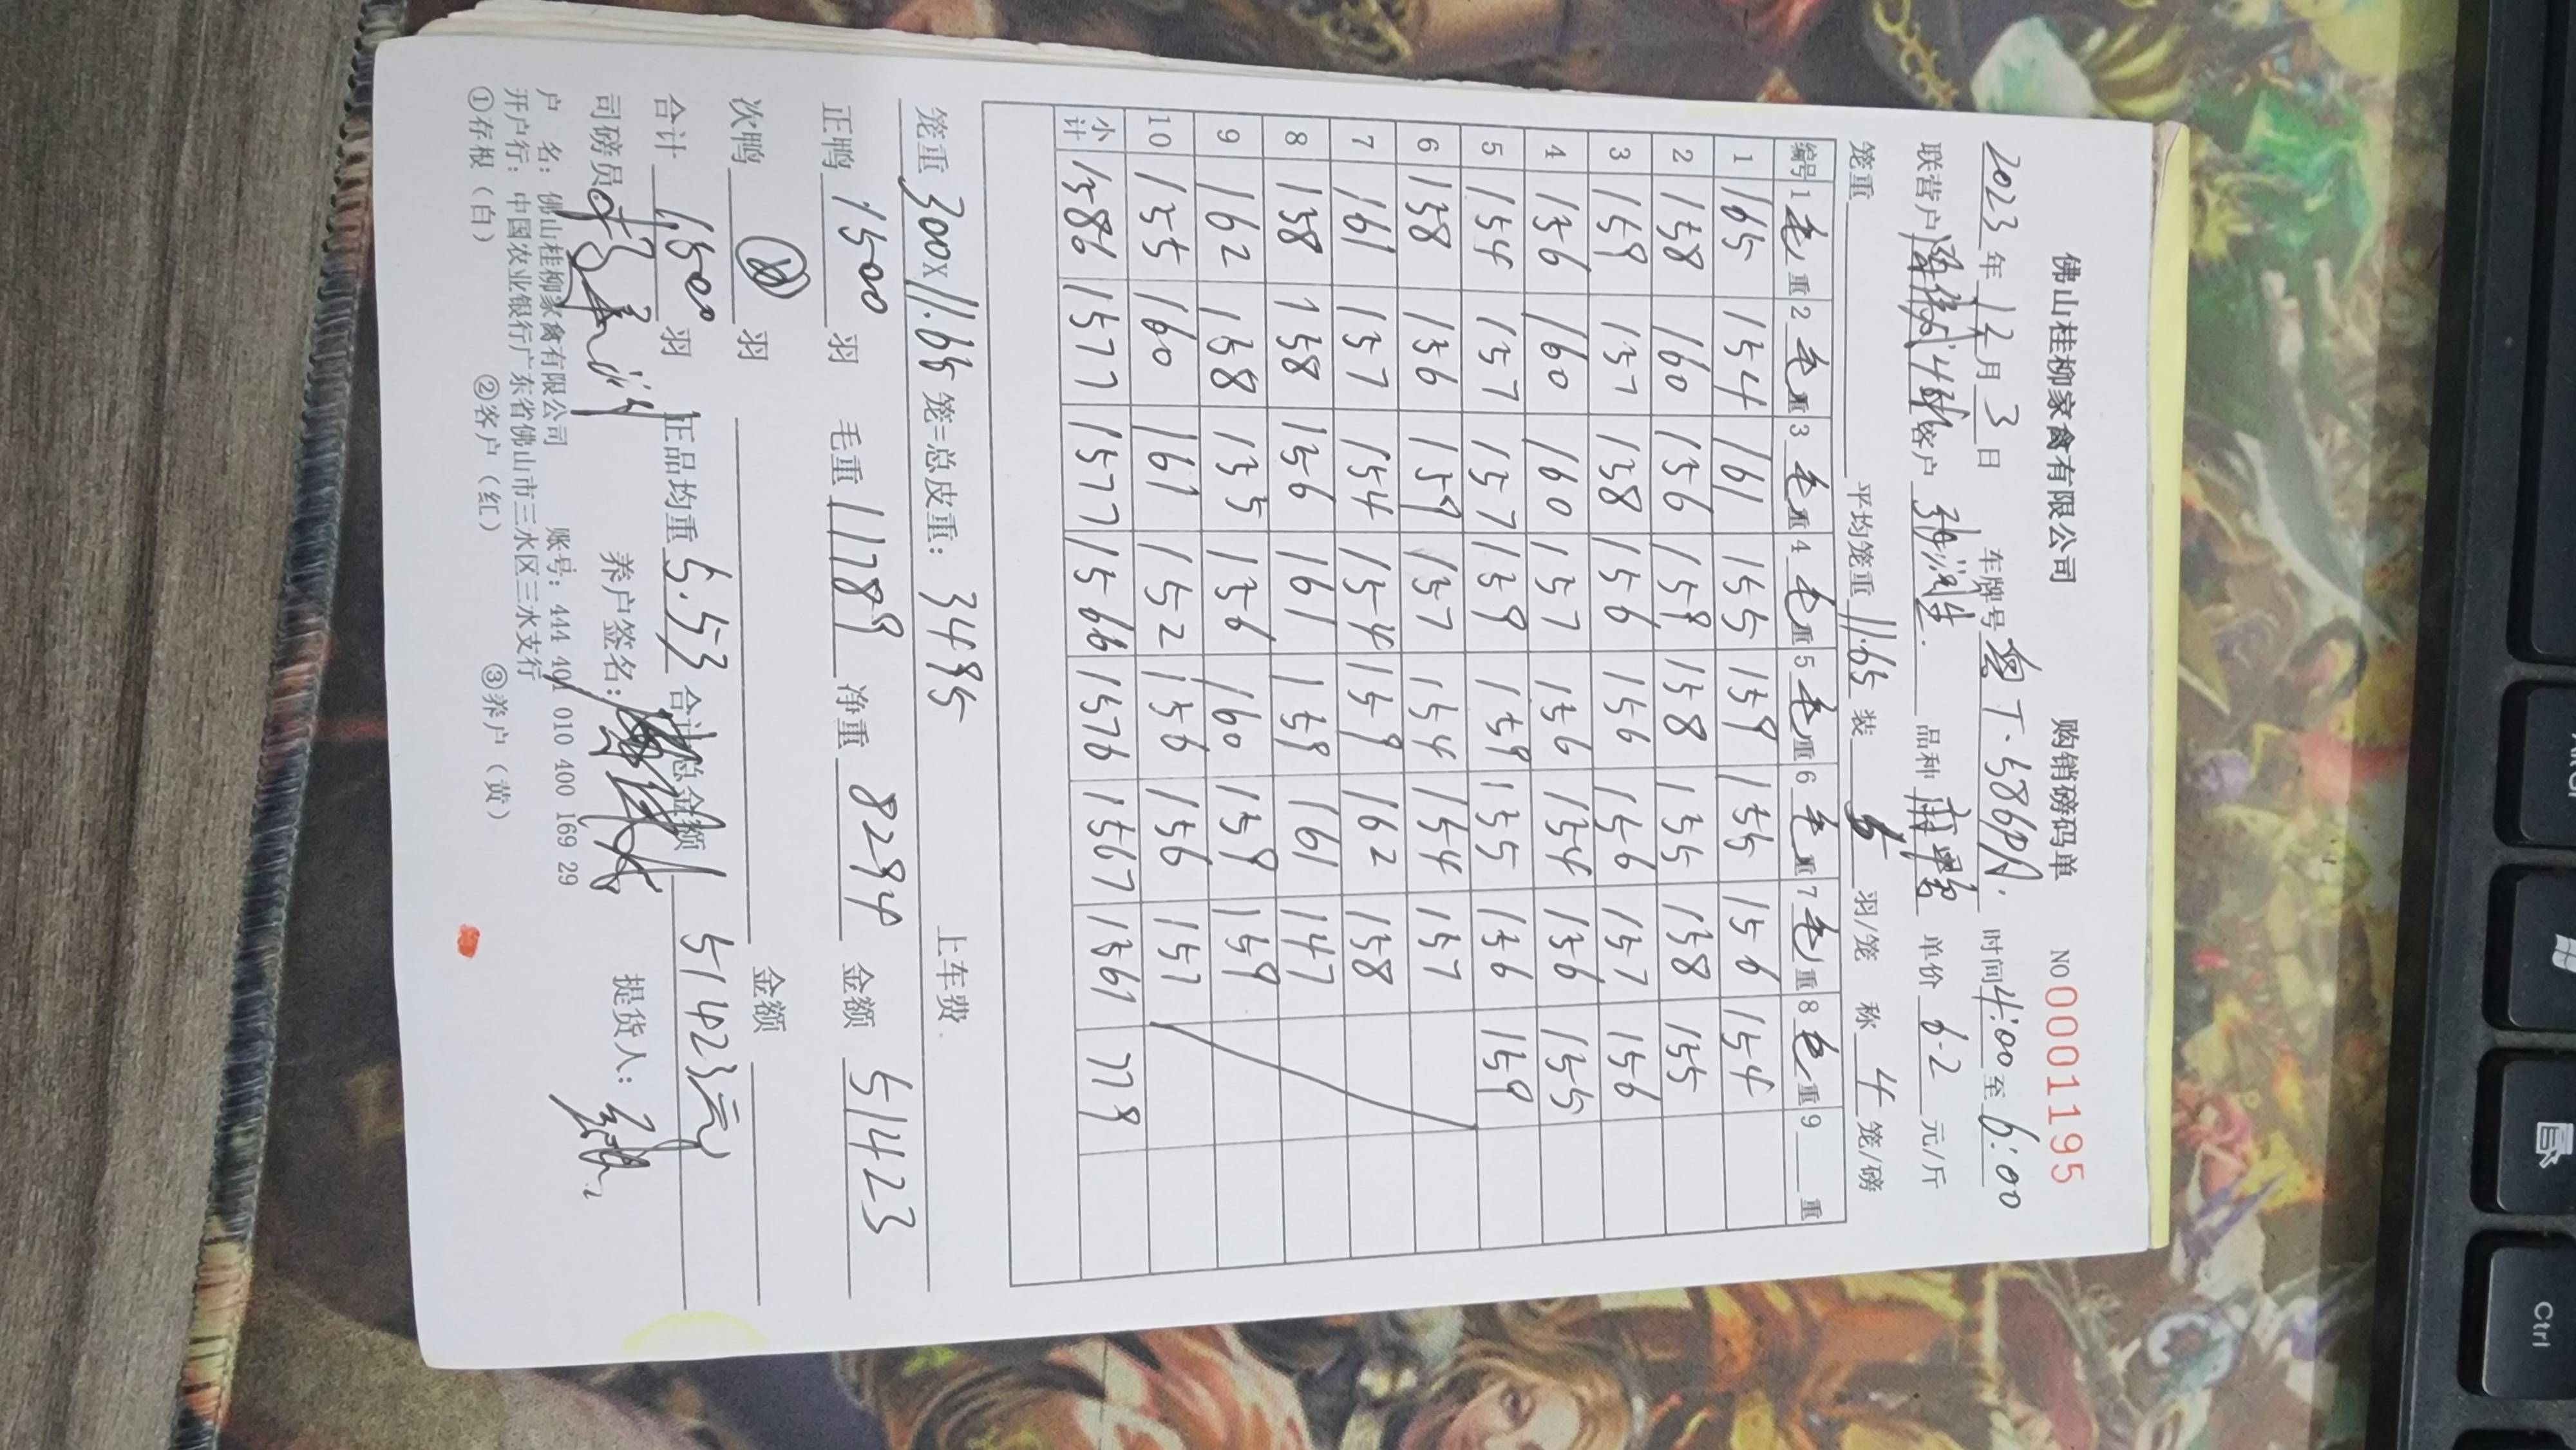 佛山桂柳家禽有限公司 购销磅码单 NO 00001195
2023 年 12 月 3 日 车牌号 粤T·586PA. 时间 4:00 至 6:00
联营户 客户 品种 单价 6.2 元/斤
笼重 平均笼重 11.65 装 5 羽/笼 称 4 笼/磅
编号 1 毛 重 2 毛 重 3 毛 重 4 毛 重 5 毛 重 6 毛 重 7 毛 重 8 毛 重 9 重
1 165 154 161 155 159 155 156 154
2 158 160 156 159 158 155 158 155
3 159 157 158 156 156 156 157 156
4 156 160 160 157 156 154 156 155
5 154 157 157 159 159 155 156 159
6 158 156 159 157 154 154 157
7 161 157 154 154 159 162 158
8 158 158 156 161 159 161 147
9 162 158 155 156 160 159 159
10 155 160 161 152 156 156 157
小计 1586 1577 1577 1566 1576 1567 1561 779
笼重 300 X 11.65 笼=总皮重: 3495 上车费
正鸭 1500 羽 毛重 11789 净重 8294 金额 51423
次鸭 羽 金额
合计 1500 羽 正品均重 5.53 合计总金额 51423元
司磅员 养户签名: 提货人:
户 名: 佛山桂柳家禽有限公司 账号: 444 401 010 400 169 29
开户行: 中国农业银行广东省佛山市三水区三水支行
①存根(白) ②客户(红) ③养户(黄)
Ctrl